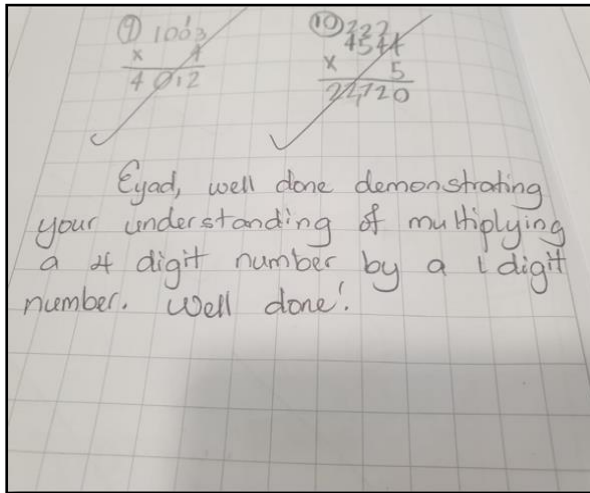 9 1003
x 4
4012
10 222
4544
x 5
22,720
Eyad, well done demonstrating
your understanding of multiplying
a 4 digit number by a 1 digit
number. Well done!